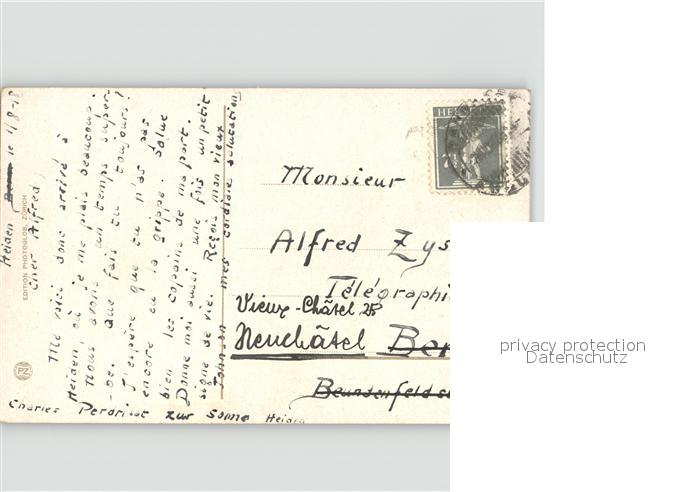 Heiden le 1/8-18
Cher Alfred,
Me voici donc arrivé à
Heiden, où je me plais beaucoup.
Nous avons un temps super-
-be. Que fais tu toujours?
J'espère que tu n'as pas
encore eu la grippe. Salue
bien les copains de ma part.
Donne moi aussi une fois un petit
signe de vie. Reçois mon vieux
mes cordiale salutation
Charles Perdrisat zur Sonne Heiden
EDITION PHOTOGLOB, ZÜRICH
PZ
HELV
Monsieur
Alfred Zys
Télégraphi
Vieux-Châtel 25
Neuchâtel Ber
Beundenfeldst
privacy protection
Datenschutz